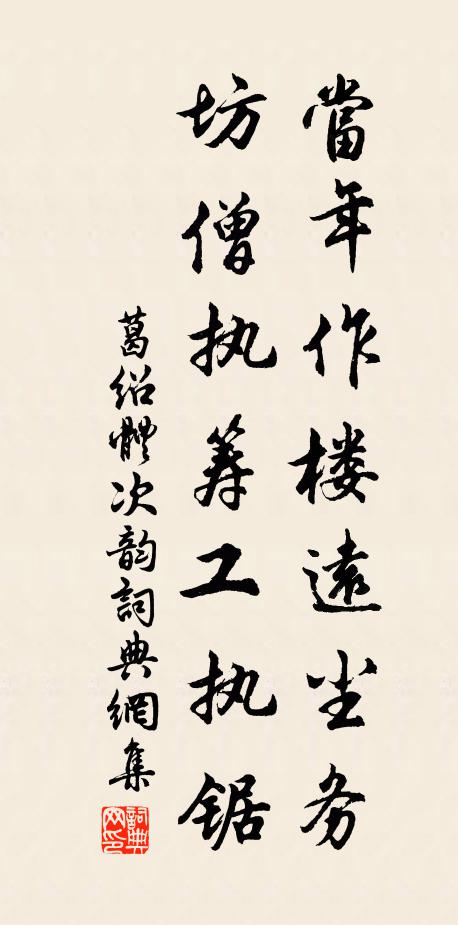 當年作楼遠尘务
坊僧执筹工执锯
葛绍體次韵詞典網集
詞典网印